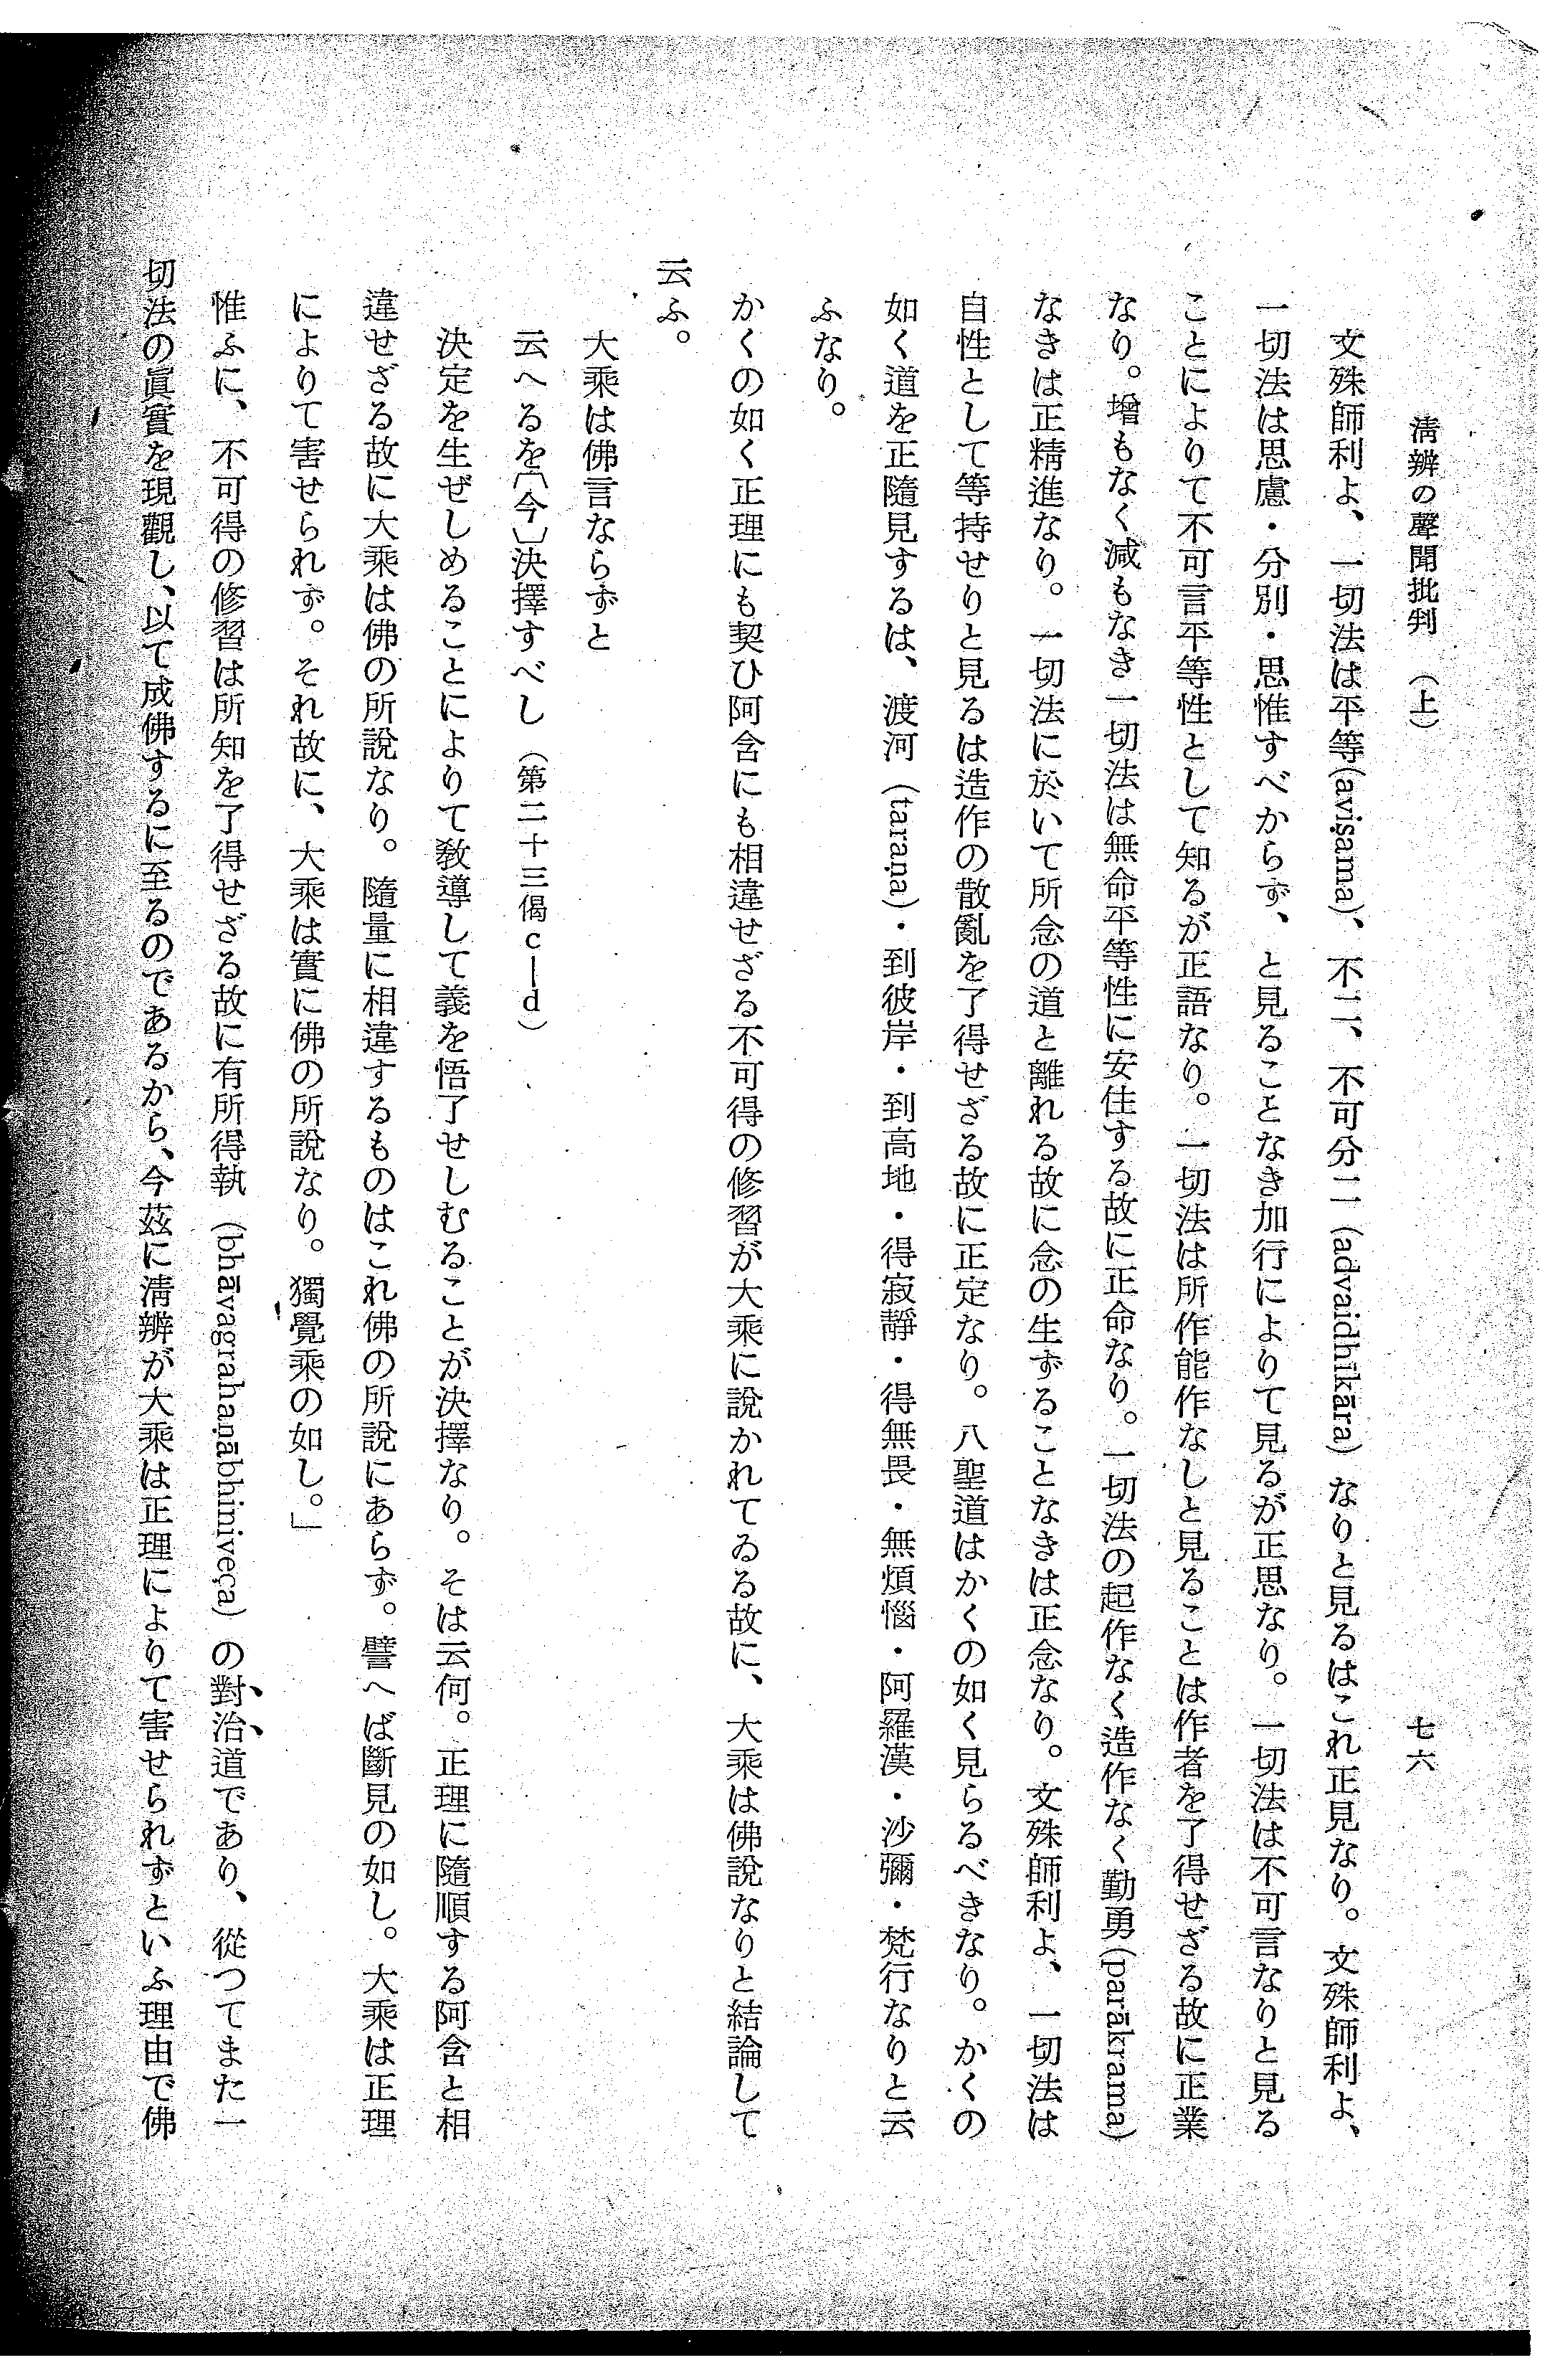 淸辨の聲聞批判　（上）
七六
文殊師利よ、一切法は平等(aviṣama)、不二、不可分二 (advaidhīkāra) なりと見るはこれ正見なり。文殊師利よ、
一切法は思慮・分別・思惟すべからず、と見ることなき加行によりて見るが正思なり。一切法は不可言なりと見る
ことによりて不可言平等性として知るが正語なり。一切法は所作能作なしと見ることは作者を了得せざる故に正業
なり。增もなく減もなき一切法は無命平等性に安住する故に正命なり。一切法の起作なく造作なく勤勇(parākrama)
なきは正精進なり。一切法に於いて所念の道と離れる故に念の生ずることなきは正念なり。文殊師利よ、一切法は
自性として等持せりと見るは造作の散亂を了得せざる故に正定なり。八聖道はかくの如く見らるべきなり。かくの
如く道を正隨見するは、渡河 (taraṇa)・到彼岸・到高地・得寂靜・得無畏・無煩惱・阿羅漢・沙彌・梵行なりと云
ふなり。
かくの如く正理にも契ひ阿含にも相違せざる不可得の修習が大乘に說かれてゐる故に、大乘は佛說なりと結論して
云ふ。
大乘は佛言ならずと
云へるを〔今〕決擇すべし（第二十三偈c—d）
決定を生ぜしめることによりて敎導して義を悟了せしむることが決擇なり。そは云何。正理に隨順する阿含と相
違せざる故に大乘は佛の所說なり。隨量に相違するものはこれ佛の所說にあらず。譬へば斷見の如し。大乘は正理
によりて害せられず。それ故に、大乘は實に佛の所說なり。獨覺乘の如し。」
惟ふに、不可得の修習は所知を了得せざる故に有所得執 (bhāvagrahaṇābhiniveça) の對治道であり、從つてまた一
切法の眞實を現觀し、以て成佛するに至るのであるから、今茲に淸辨が大乘は正理によりて害せられずといふ理由で佛